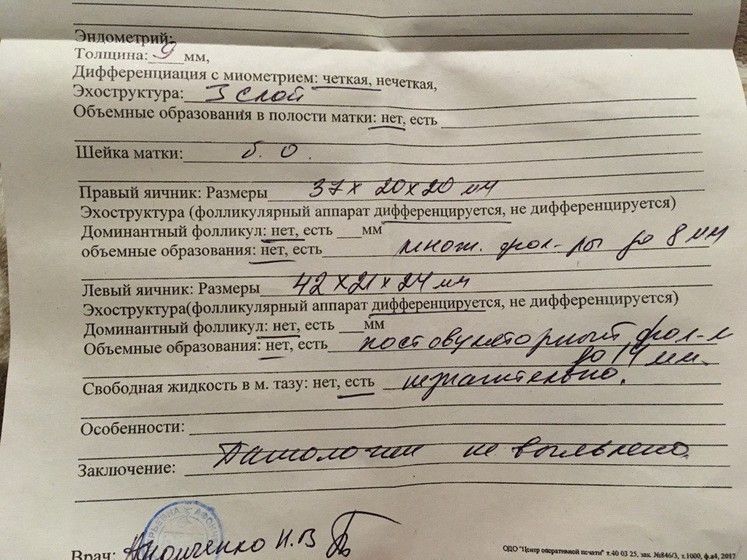 Эндометрий:
Толщина: 9 мм,
Дифференциация с миометрием: четкая, нечеткая,
Эхоструктура: 3 слой
Объемные образования в полости матки: нет, есть
Шейка матки: б. О.
Правый яичник: Размеры 37 х 20 х 20 мм
Эхоструктура (фолликулярный аппарат дифференцируется, не дифференцируется)
Доминантный фолликул: нет, есть ___мм
объемные образования: нет, есть множ. фол-ры до 8 мм
Левый яичник: Размеры 42 х 21 х 24 мм
Эхоструктура(фолликулярный аппарат дифференцируется, не дифференцируется)
Доминантный фолликул: нет, есть ___мм
Объемные образования: нет, есть постовуляторный фол-л
до 14 мм.
Свободная жидкость в м. тазу: нет, есть незначительно.
Особенности:
Заключение: Патологии не выявлено
Врач: Н.В
ОДО "Центр оперативной печати" т.40 03 25, зак. №846/3, т.1000, ф.а4, 2017